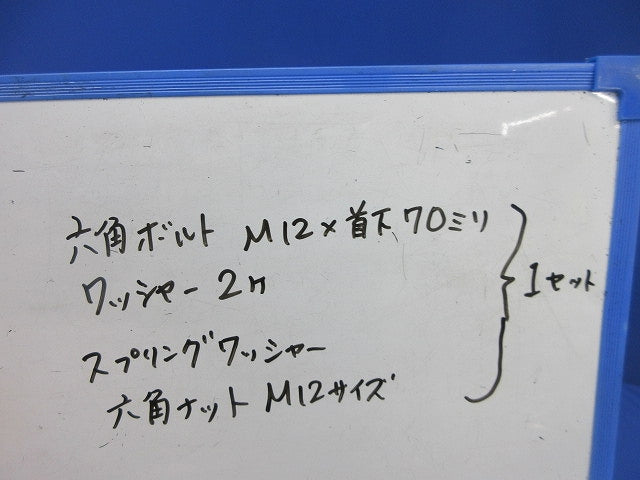 六角ボルト M12×首下70ミリ
ワッシャー 2ケ
スプリングワッシャー
六角ナット M12サイズ
1セット